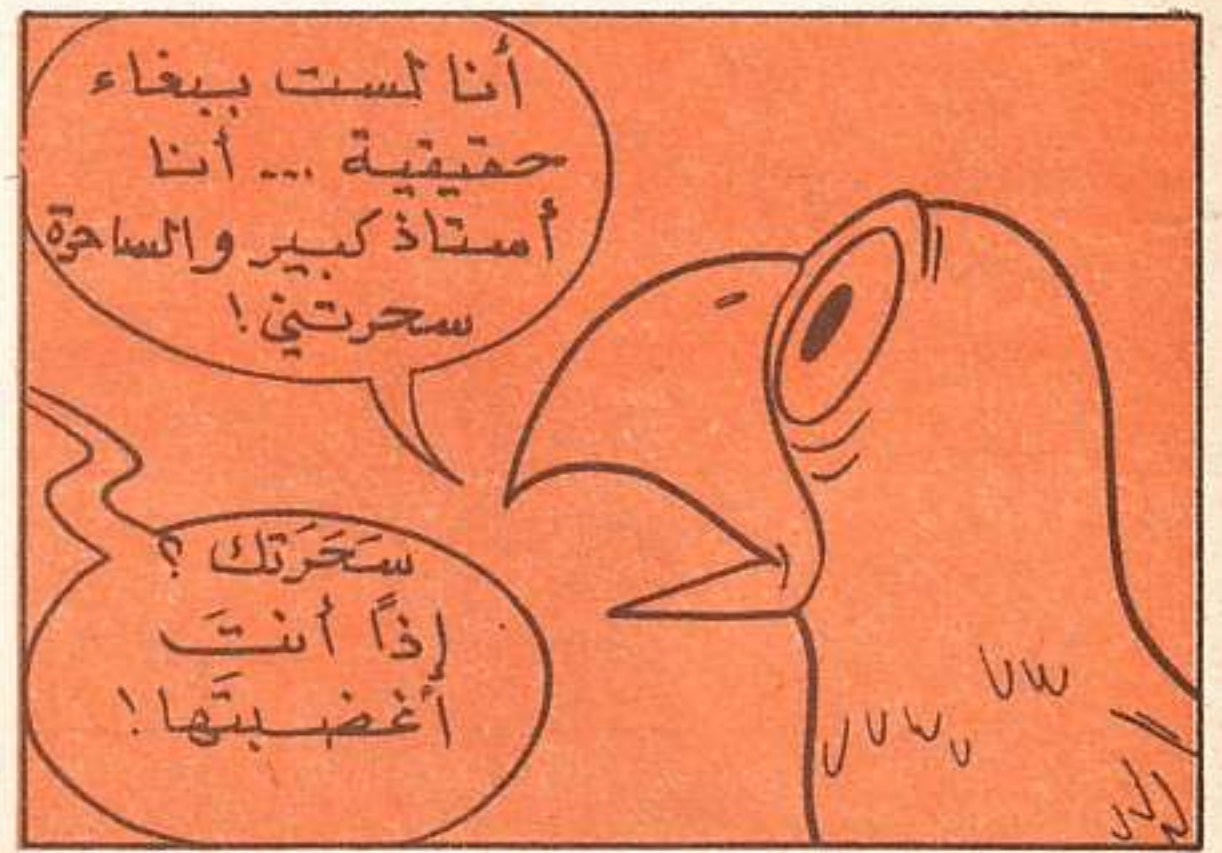 أنا لست ببغاء
حقيقية ... أنا
أستاذ كبير والساحرة
سحرتني!
سَحَرَتك ؟
إذاً أنتَ
أغضبتَها!